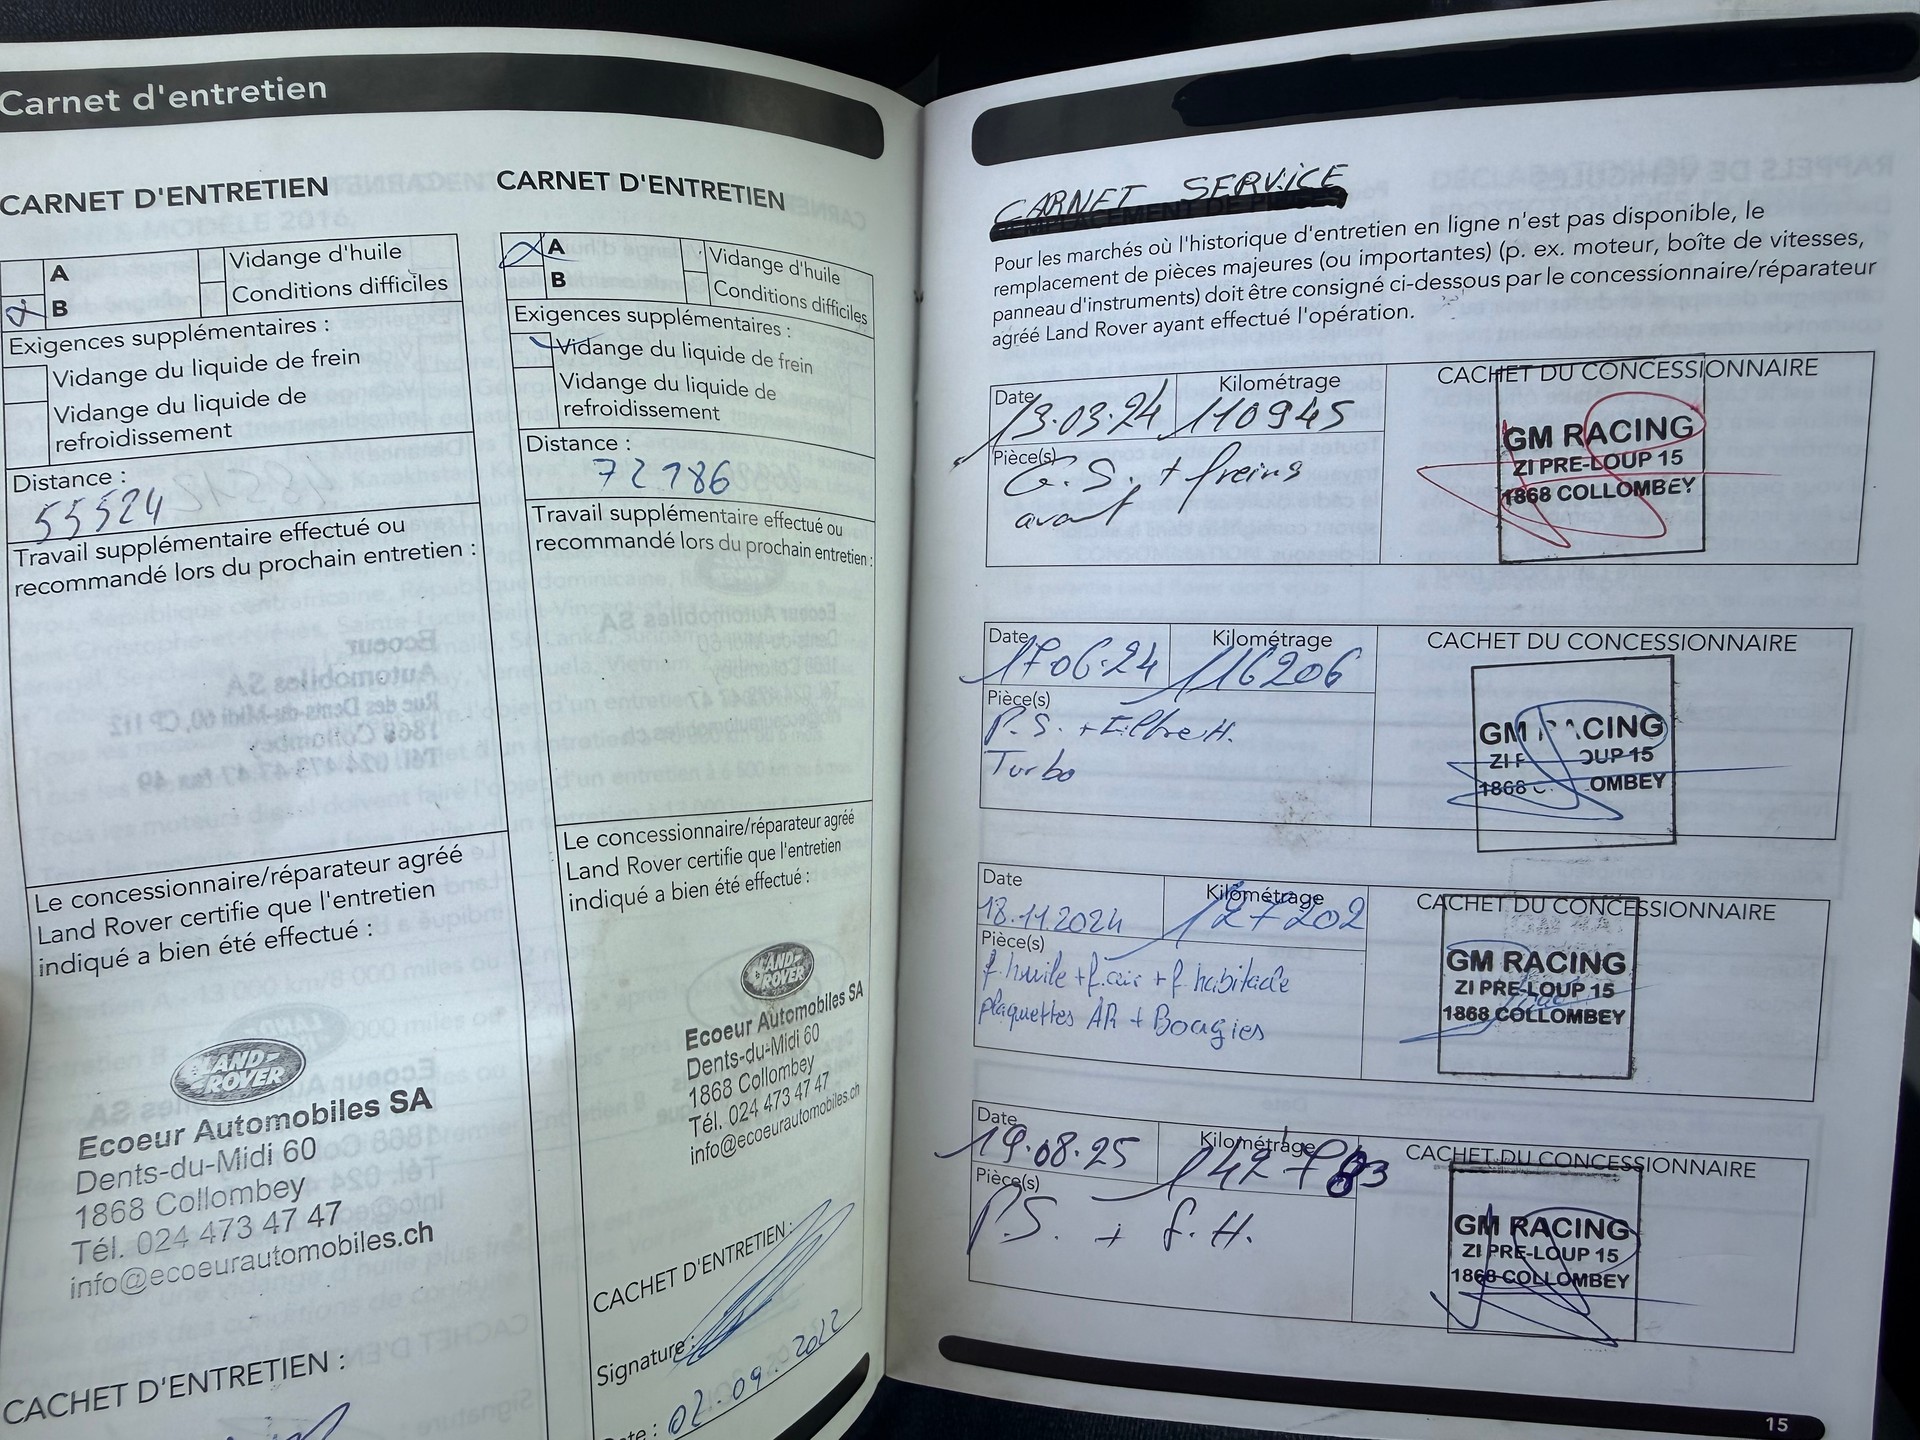 Carnet d'entretien
CARNET D'ENTRETIEN
A
B
Vidange d'huile
Conditions difficiles
Exigences supplémentaires :
Vidange du liquide de frein
Vidange du liquide de
refroidissement
Distance :
55524
Travail supplémentaire effectué ou
recommandé lors du prochain entretien :
Le concessionnaire/réparateur agréé
Land Rover certifie que l'entretien
indiqué a bien été effectué :
LAND-
ROVER
Ecoeur Automobiles SA
Dents-du-Midi 60
1868 Collombey
Tél. 024 473 47 47
info@ecoeurautomobiles.ch
CACHET D'ENTRETIEN :
CARNET D'ENTRETIEN
A
B
Vidange d'huile
Conditions difficiles
Exigences supplémentaires :
Vidange du liquide de frein
Vidange du liquide de
refroidissement
Distance :
72786
Travail supplémentaire effectué ou
recommandé lors du prochain entretien :
Le concessionnaire/réparateur agréé
Land Rover certifie que l'entretien
indiqué a bien été effectué :
LAND-
ROVER
Ecoeur Automobiles SA
Dents-du-Midi 60
1868 Collombey
Tél. 024 473 47 47
info@ecoeurautomobiles.ch
CACHET D'ENTRETIEN :
Signature :
02.09.2022
CARNET SERVICE
Pour les marchés où l'historique d'entretien en ligne n'est pas disponible, le
remplacement de pièces majeures (ou importantes) (p. ex. moteur, boîte de vitesses,
panneau d'instruments) doit être consigné ci-dessous par le concessionnaire/réparateur
agréé Land Rover ayant effectué l'opération.
Date Kilométrage CACHET DU CONCESSIONNAIRE
13.03.24 110945
Pièce(s)
G.S. + freins
avant
GM RACING
ZI PRE-LOUP 15
1868 COLLOMBEY
Date Kilométrage CACHET DU CONCESSIONNAIRE
17.06.24 116206
Pièce(s)
P.S. + Filtre H.
Turbo
GM RACING
OUP 15
1868 OMBEY
Date Kilométrage CACHET DU CONCESSIONNAIRE
18.11.2024 127202
Pièce(s)
f.huile + f.air + f.habitacle
plaquettes AR + Bougies
GM RACING
ZI PRE-LOUP 15
1868 COLLOMBEY
Date Kilométrage CACHET DU CONCESSIONNAIRE
19.08.25 147783
Pièce(s)
P.S. + f.H.
GM RACING
ZI PRE-LOUP 15
1868 COLLOMBEY
15